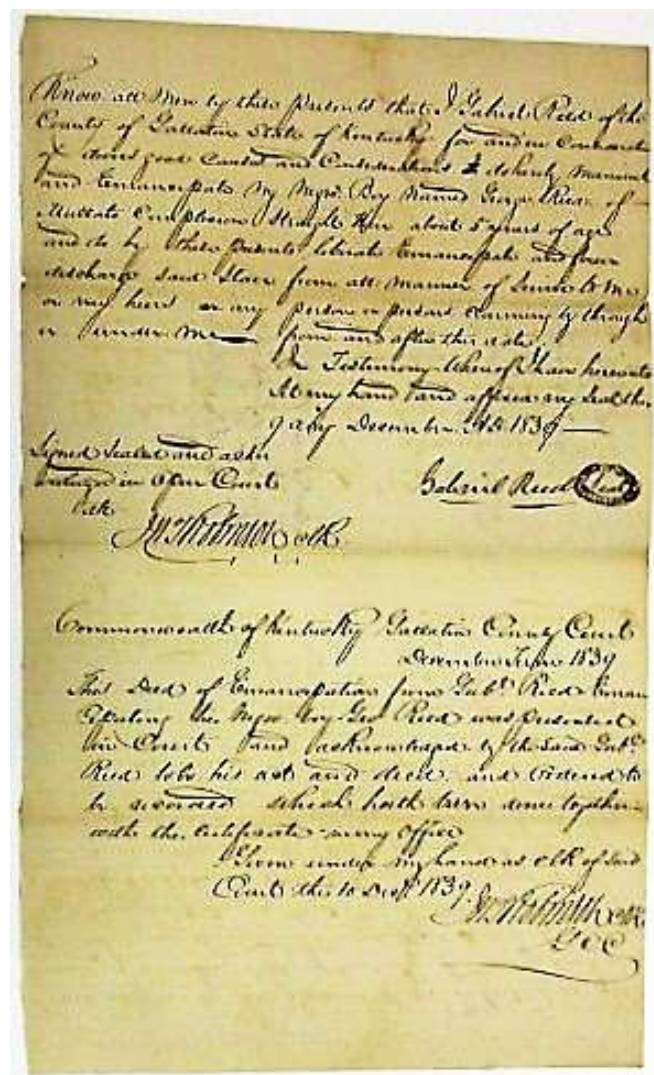 Know all Men by these presents that I Gabriel Reed of the
County of Gallatin State of Kentucky for and in Consideration
of divers good Causes and Considerations do hereby Manumit
and Emancipate my Negro Boy Named George Reed of
Mullato Complexion Straight Hair about 5 years of age
and do by these presents liberate Emancipate and forever
discharge said Slave from all manner of Service to Me
or my heirs or any person or persons claiming by through
or under Me from and after this date
In Testimony Whereof I have hereunto
Set my hand and affixed my Seal this
9 day December AD 1839
Signed Sealed and ackn
in Open Court
Gabriel Reed Seal
Jno Robinson clk
Commonwealth of Kentucky Gallatin County Court
December Term 1839
This Deed of Emancipation from Gabl. Reed Eman
cipating the Negro boy Geo Reed was presented
in Court and acknowledged by the said Gabl.
Reed to be his act and deed and ordered to
be recorded which hath been done together
with this Certificate in my Office
Given under my hand as clk of said
Court this 10 Decr 1839.
Jno Robinson clk
G C C